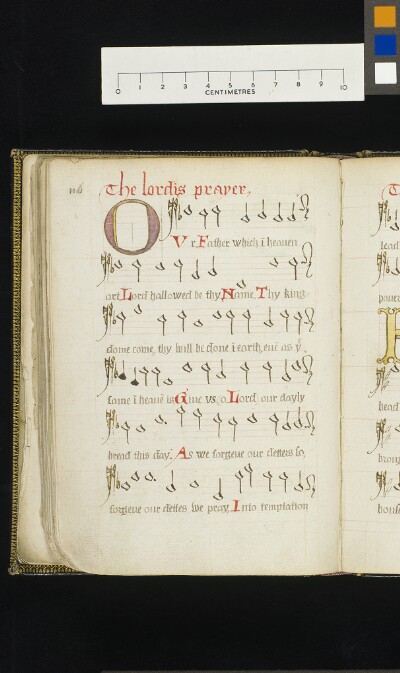 0 1 2 3 4 5 6 7 8 9 10
CENTIMETRES
The lordis prayer.
OVr Father which ī heauen
art Lord hallowed be thy Name. Thy king-
dome come, thy will be done ī earth, euē as yͭ
same ī heauē is. Giue vs, o Lord, our dayly
bread this day. As we forgeue our detters so,
forgeue our dettes we pray, Into temptation
lead
head